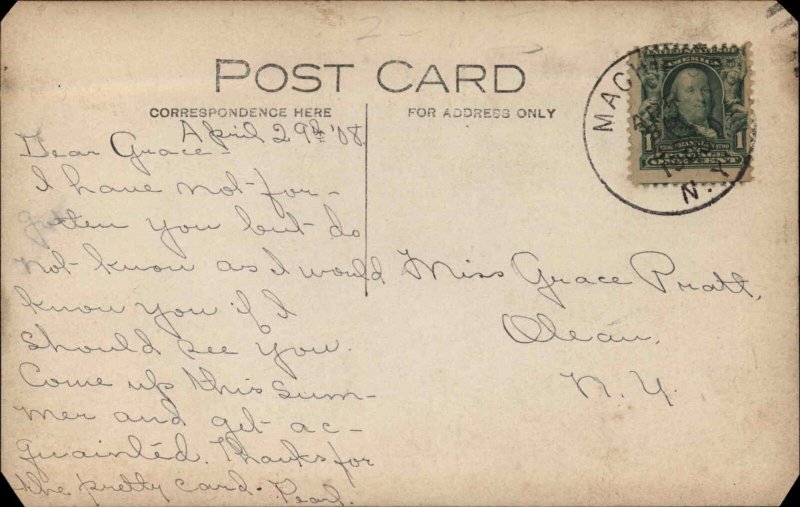 POST CARD
CORRESPONDENCE HERE
FOR ADDRESS ONLY
April 29th '08
Dear Grace-
I have not for-
gotten you but do
not know as I would
know you if I
should see you.
Come up this sum-
mer and get ac-
quainted. Thanks for
the pretty card. Pearl.
Miss Grace Pratt,
Olean,
N. Y.
N.Y.
AMERICA
FRANKLIN
1 1
ONE CENT